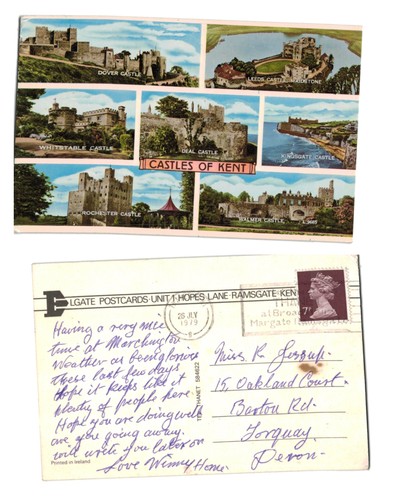 DOVER CASTLE
LEEDS CASTLE, MAIDSTONE
WHITSTABLE CASTLE
DEAL CASTLE
KINGSGATE CASTLE
CASTLES OF KENT
ROCHESTER CASTLE
WALMER CASTLE
ELGATE POSTCARDS · UNIT 1 · HOPES LANE RAMSGATE KEN
THANET 584622
Printed in Ireland
28 JLY
1979
at Broad
Margate
7P
Having a very nice
time at
Weather as being lovely
these last few days
Hope it keeps like it
plenty of people here.
Hope you are doing well
are you going away.
will write you later on
Love Winny Home
Miss K. Jessup.
15, Oakland Court.
Barton Rd.
Torquay.
Devon.